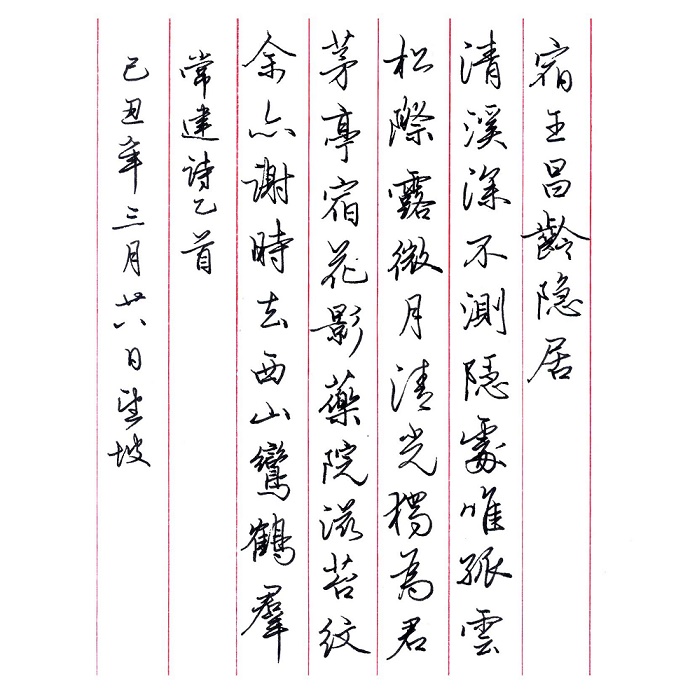 宿王昌齡隐居
清溪深不測隱處唯孤雲
松際露微月清光獨為君
茅亭宿花影藥院滋苔紋
余亦謝時去西山鸞鶴羣
常建诗乙首
己丑年三月廿八日望坡